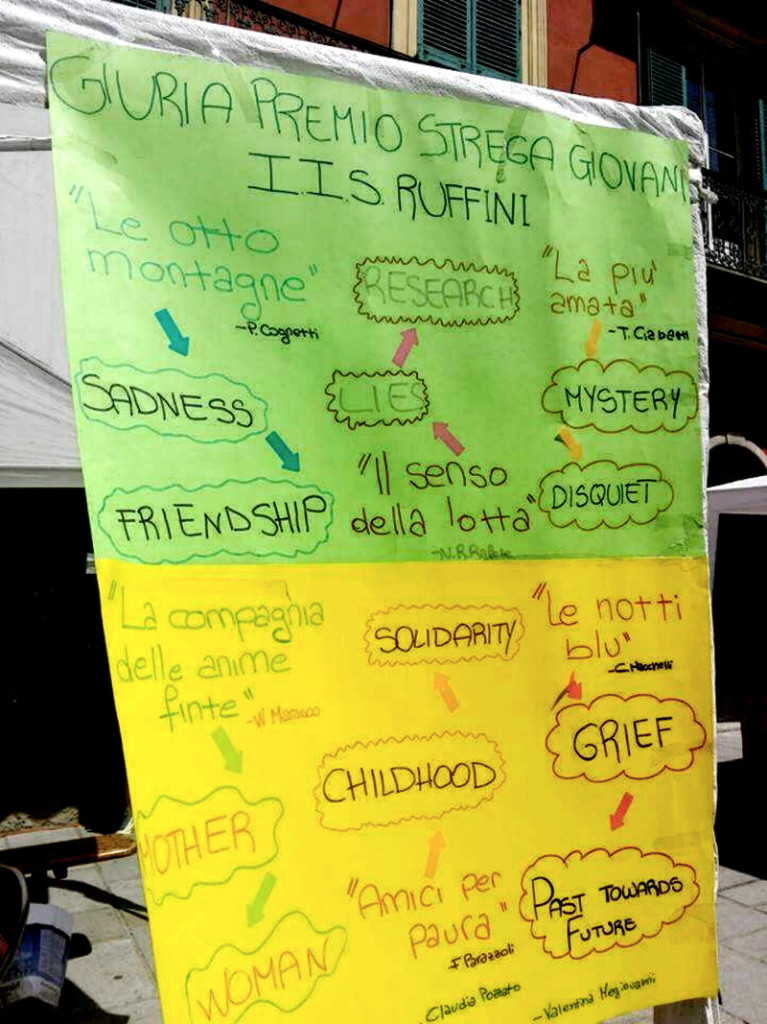 GIURIA PREMIO STREGA GIOVANI
I.I.S. RUFFINI
"Le otto
montagne"
-P. Cognetti
SADNESS
FRIENDSHIP
RESEARCH
LIES
"Il senso
della lotta"
"La più
amata"
-T. Ciabatti
MYSTERY
DISQUIET
"La compagnia
delle anime
finte"
MOTHER
WOMAN
SOLIDARITY
CHILDHOOD
"Amici per
paura"
-F Parazzoli
"Le notti
blu"
GRIEF
PAST TOWARDS
FUTURE
Claudia Pozzato
-Valentina Megiovanni